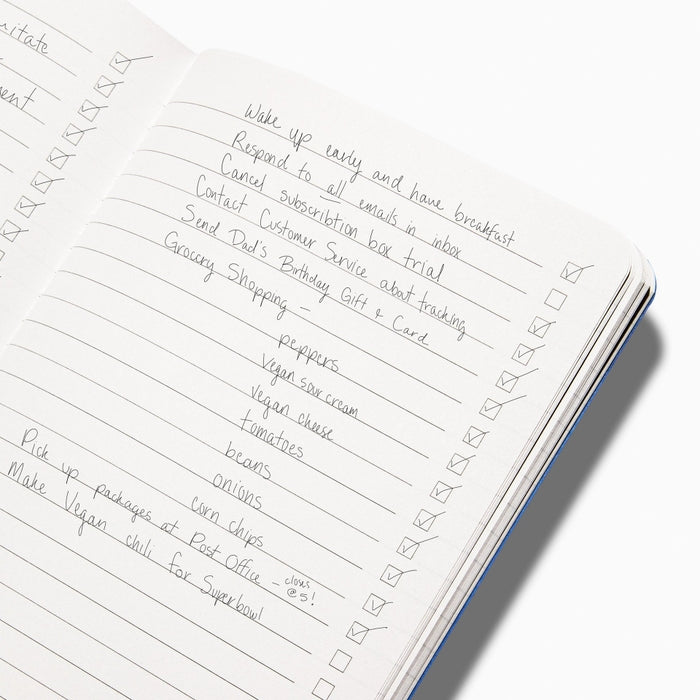 uitate
ent
Wake up early and have breakfast
Respond to all emails in inbox
Cancel subscribtion box trial
Contact Customer Service about tracking
Send Dad's Birthday Gift & Card
Grocery Shopping -
peppers
vegan sour cream
vegan cheese
tomatoes
beans
onions
corn chips
Pick up packages at Post Office - closes @ 5!
Make Vegan chili for Superbowl